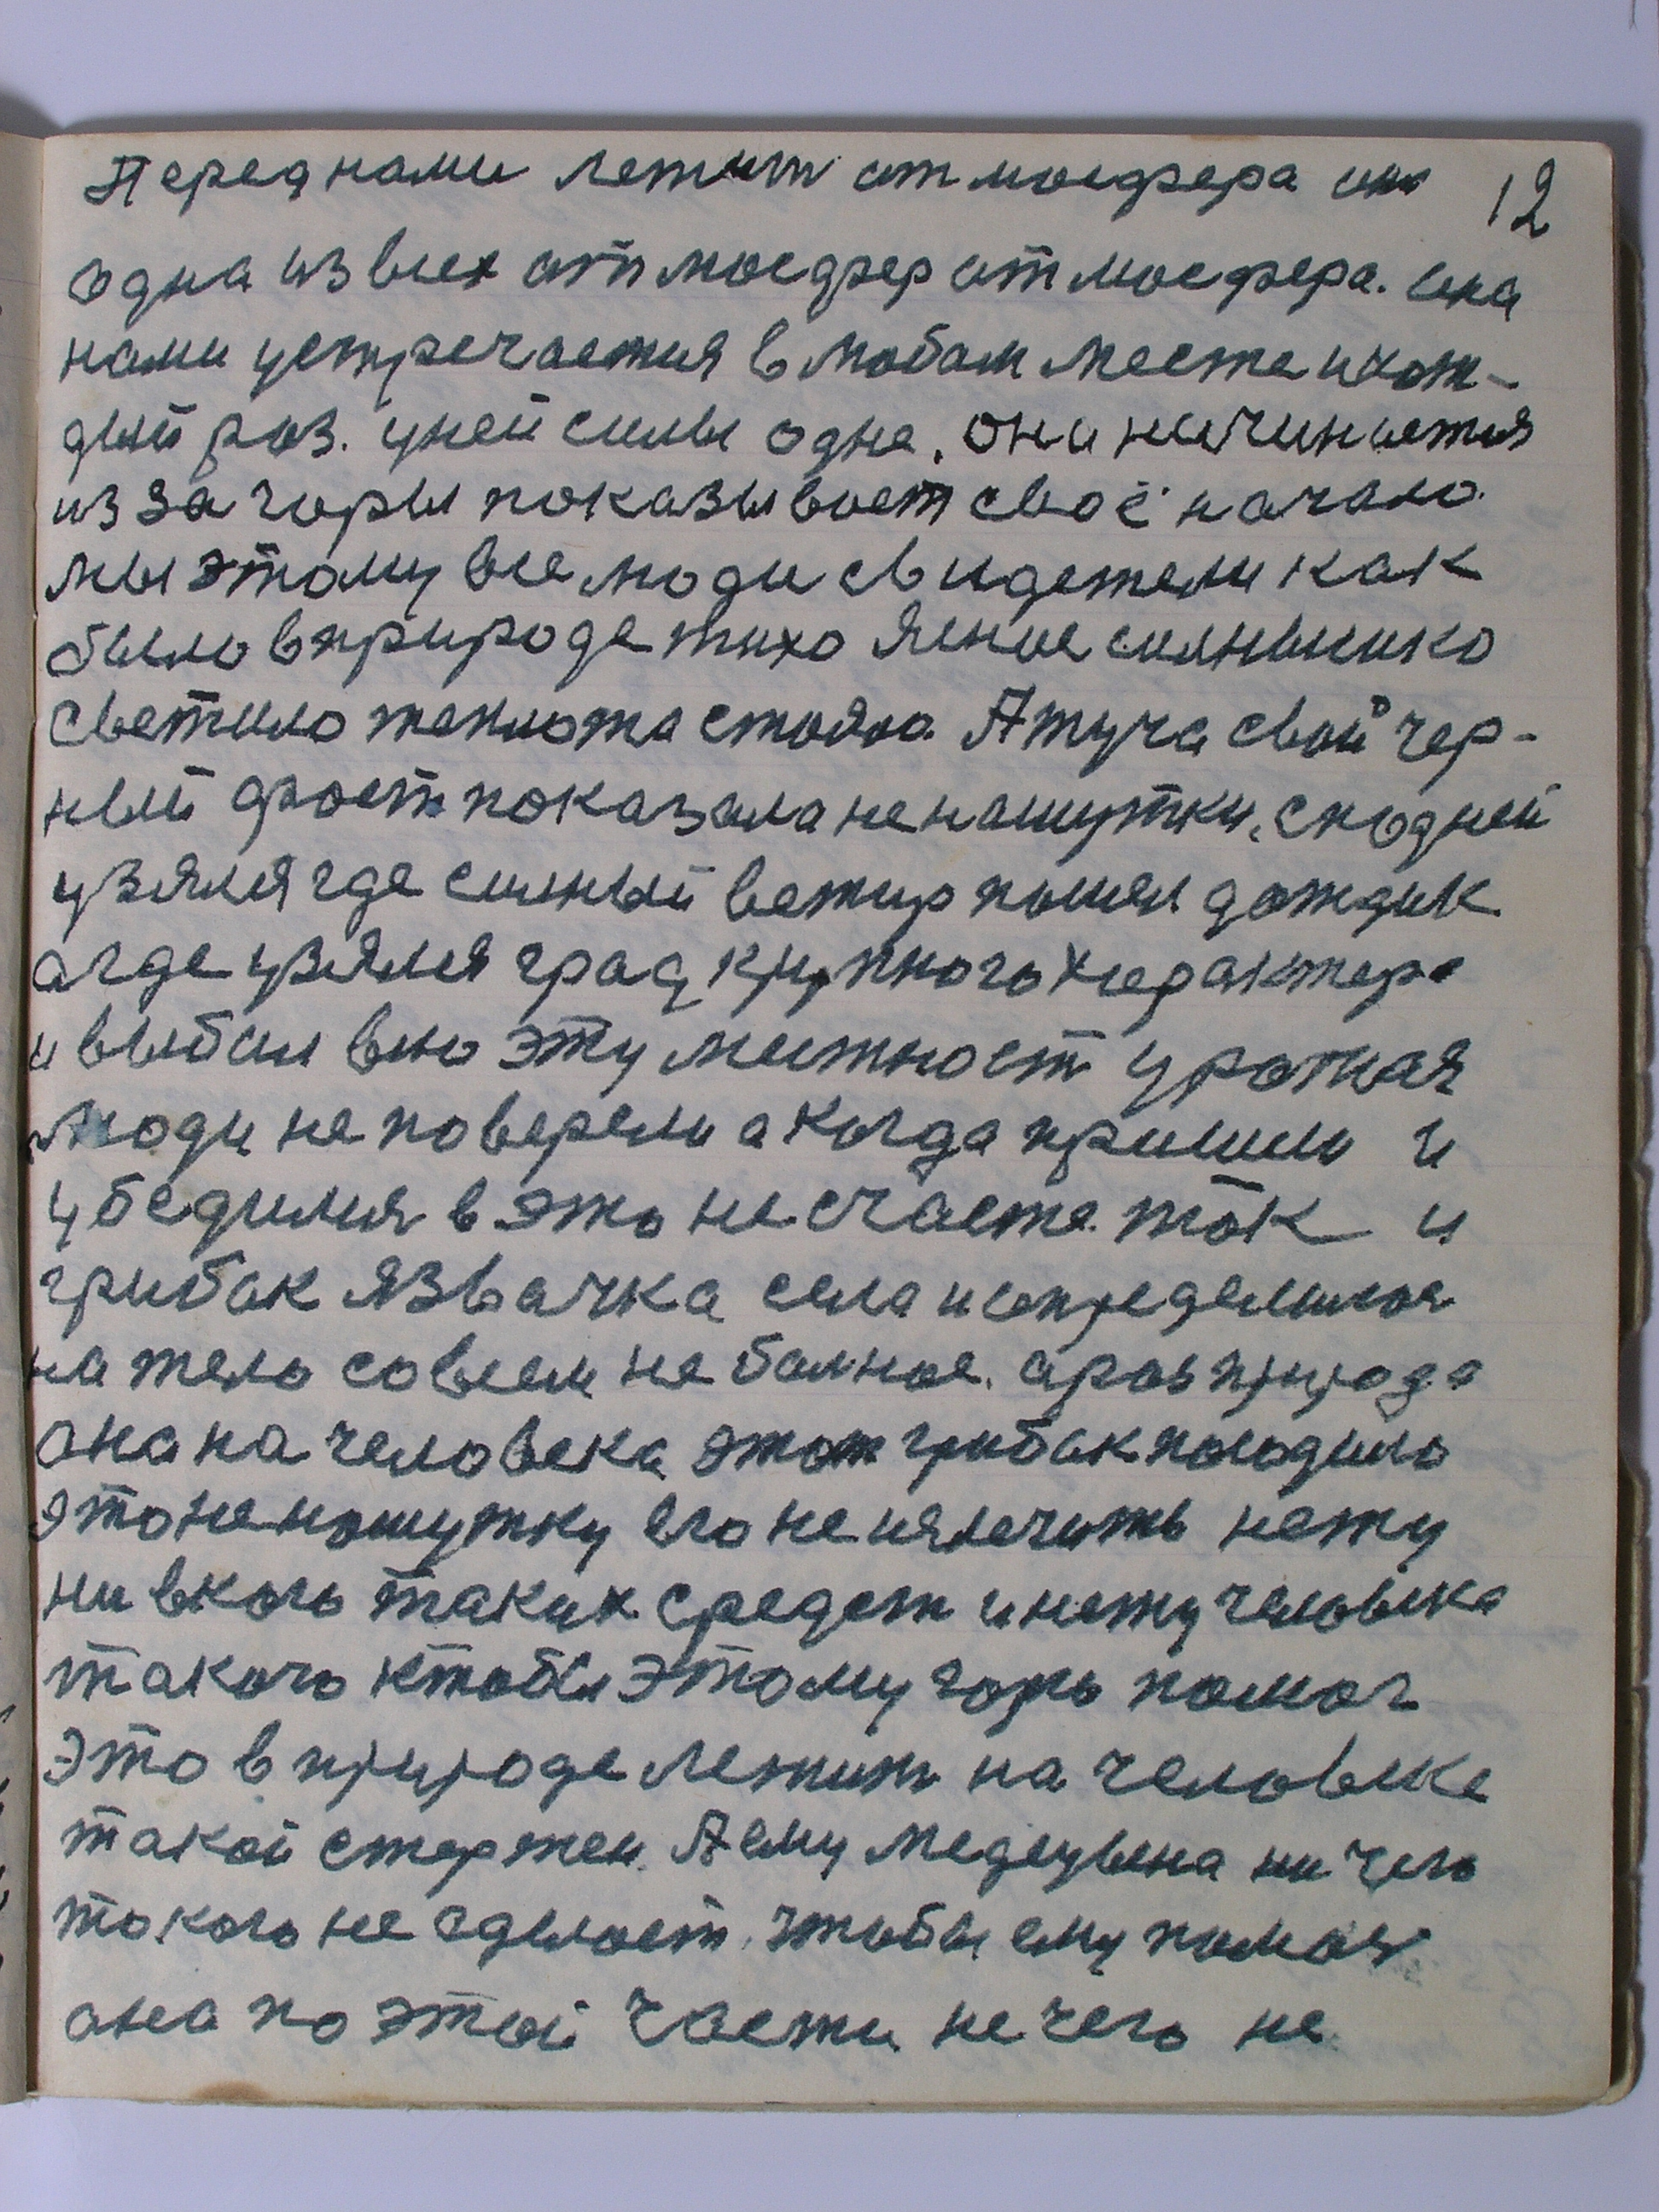 Перед нами летит атмосфера она 12
одна из всех атмосфер атмосфера. она
нами устречается в любом месте и кож-
дый роз. у ней силы одне. она начинается
из за горы показывает своё начало.
мы этому все люди свидетели как
было в природе тихо Ясное солнышко
светило теплота стояло. А туча свой чер-
ный фост показала не на шутки. с под ней
узялся где силный ветир пошел дождик.
а где узялся град крупного характера
и выбил всю эту местност урожая
Люди не поверели а когда пришли и
убедился в это несчастя. так и
грибок язвачка села и определился
на тело совсем не болное. а роз природа
она на человека этот грибок посодила
это не на шутку его не излечить нету
ни в кого таких средст и нету человека
такого кто бы этому горю помог
это в природе лежит на человеке
такой стержен. А ему медецына ни чего
такого не сделает. чтобы ему помоч
она по этой части не чего не